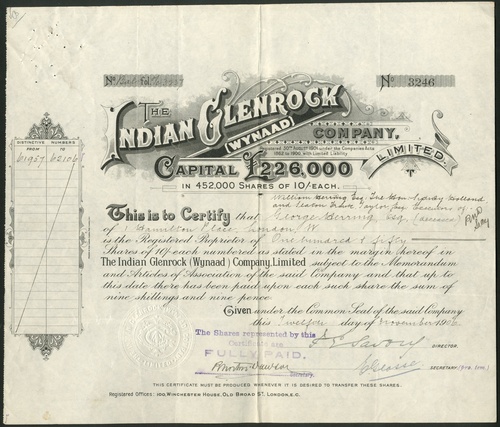 No
No 3246
THE
INDIAN GLENROCK
(WYNAAD)
COMPANY,
LIMITED.
Registered 30th August 1901 under the Companies Acts
1862 to 1900 with Limited Liability
CAPITAL £226,000
IN 452,000 SHARES OF 10/- EACH.
DISTINCTIVE NUMBERS
FROM TO
61957 62106
William Herring Esq. The Hon. Sydney Holland
and Seaton Frank Taylor Esq. Executors of
This is to Certify that George Herring Esq. (deceased)
of 1 Hamilton Place, London, W.
is the Registered Proprietor of One hundred & fifty
Shares of 10/- each numbered as stated in the margin hereof in
The Indian Glenrock (Wynaad) Company, Limited subject to the Memorandum
and Articles of Association of the said Company and that up to
this date there has been paid upon each such share the sum of
nine shillings and nine pence
Given under the Common Seal of the said Company
this twelfth day of November 1906
The Shares represented by this
Certificate are
FULLY PAID.
Secretary.
DIRECTOR.
SECRETARY (pro. tem.)
THIS CERTIFICATE MUST BE PRODUCED WHENEVER IT IS DESIRED TO TRANSFER THESE SHARES.
Registered Offices: 100, WINCHESTER HOUSE, OLD BROAD ST. LONDON, E.C.